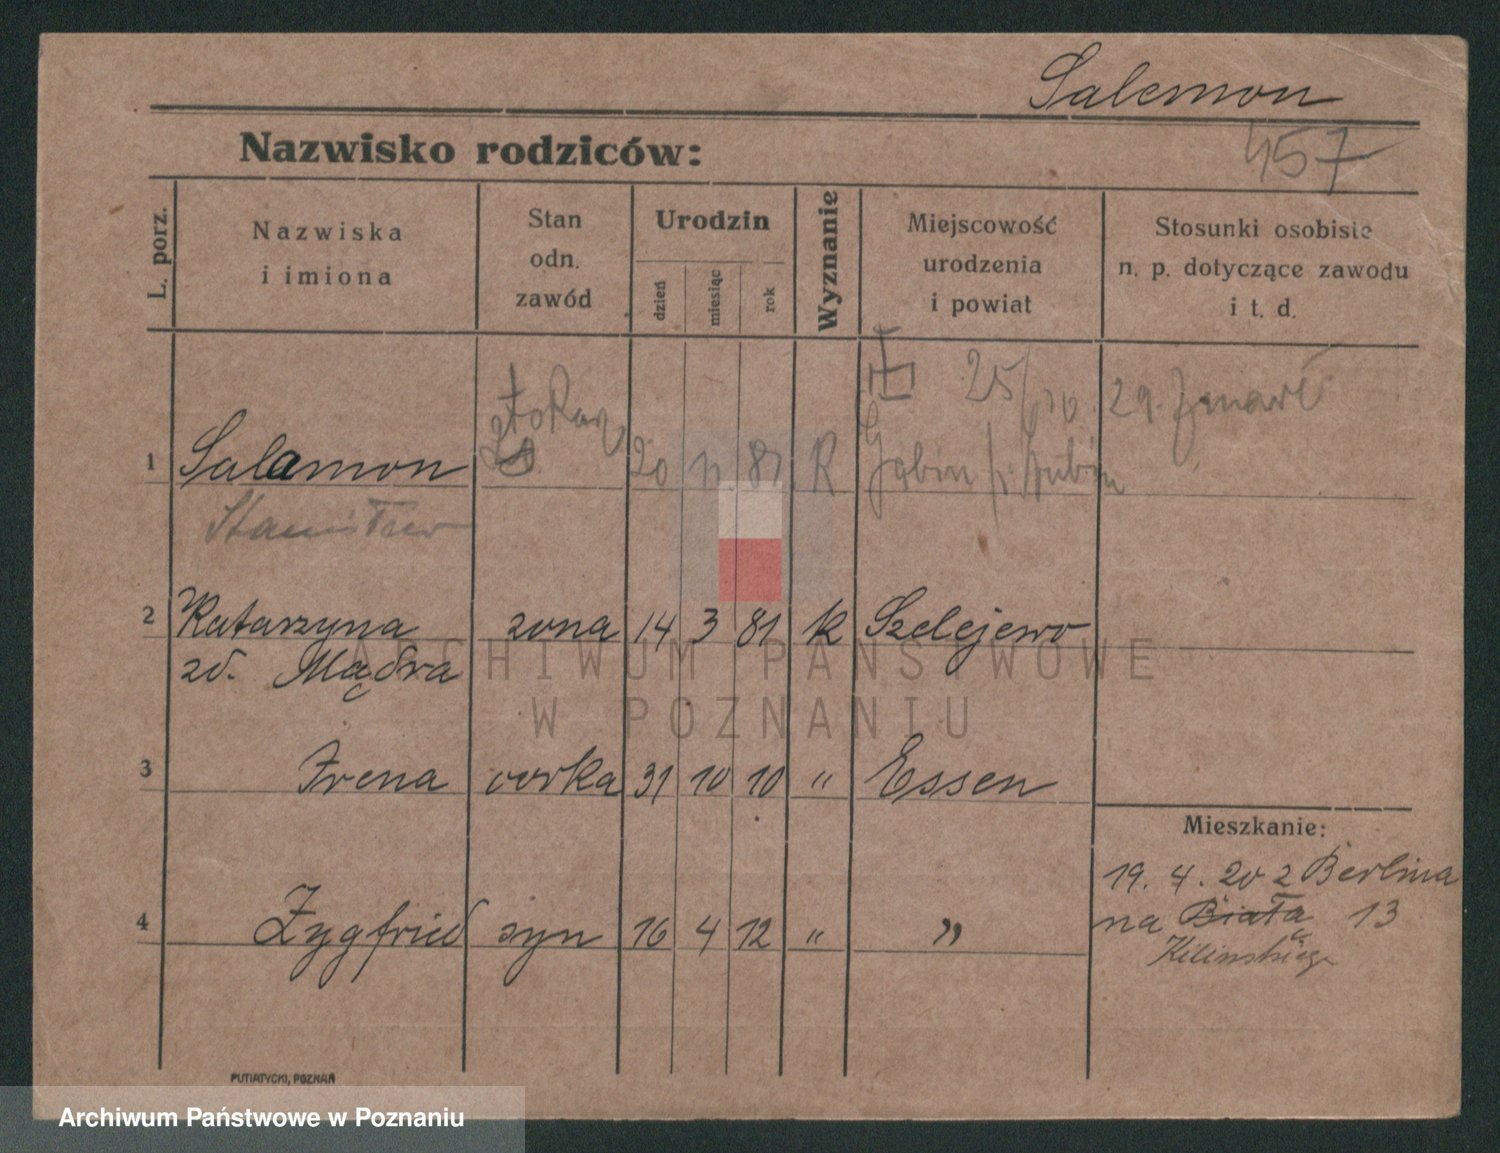 Salemon
457
Nazwisko rodziców:
L. porz.
Nazwiska
i imiona
Stan
odn.
zawód
Urodzin
dzień
miesiąc
rok
Wyznanie
Miejscowość
urodzenia
i powiat
Stosunki osobiste
n. p. dotyczące zawodu
i t. d.
25/10. 29. zmarł
1 Salamon tokarz 20 11 81 R Gąbin p. Szubin
Stanisław
2 Katarzyna żona 14 3 81 k Szelejewo
zd. Mądra
3 Irena córka 31 10 10 " Essen
Mieszkanie:
19. 4. 20 z Berlina
4 Zygfried syn 16 4 12 " "
na Biała 13
Kilińskiego
PUTIATYCKI, POZNAŃ
ARCHIWUM PAŃSTWOWE
W POZNANIU
Archiwum Państwowe w Poznaniu